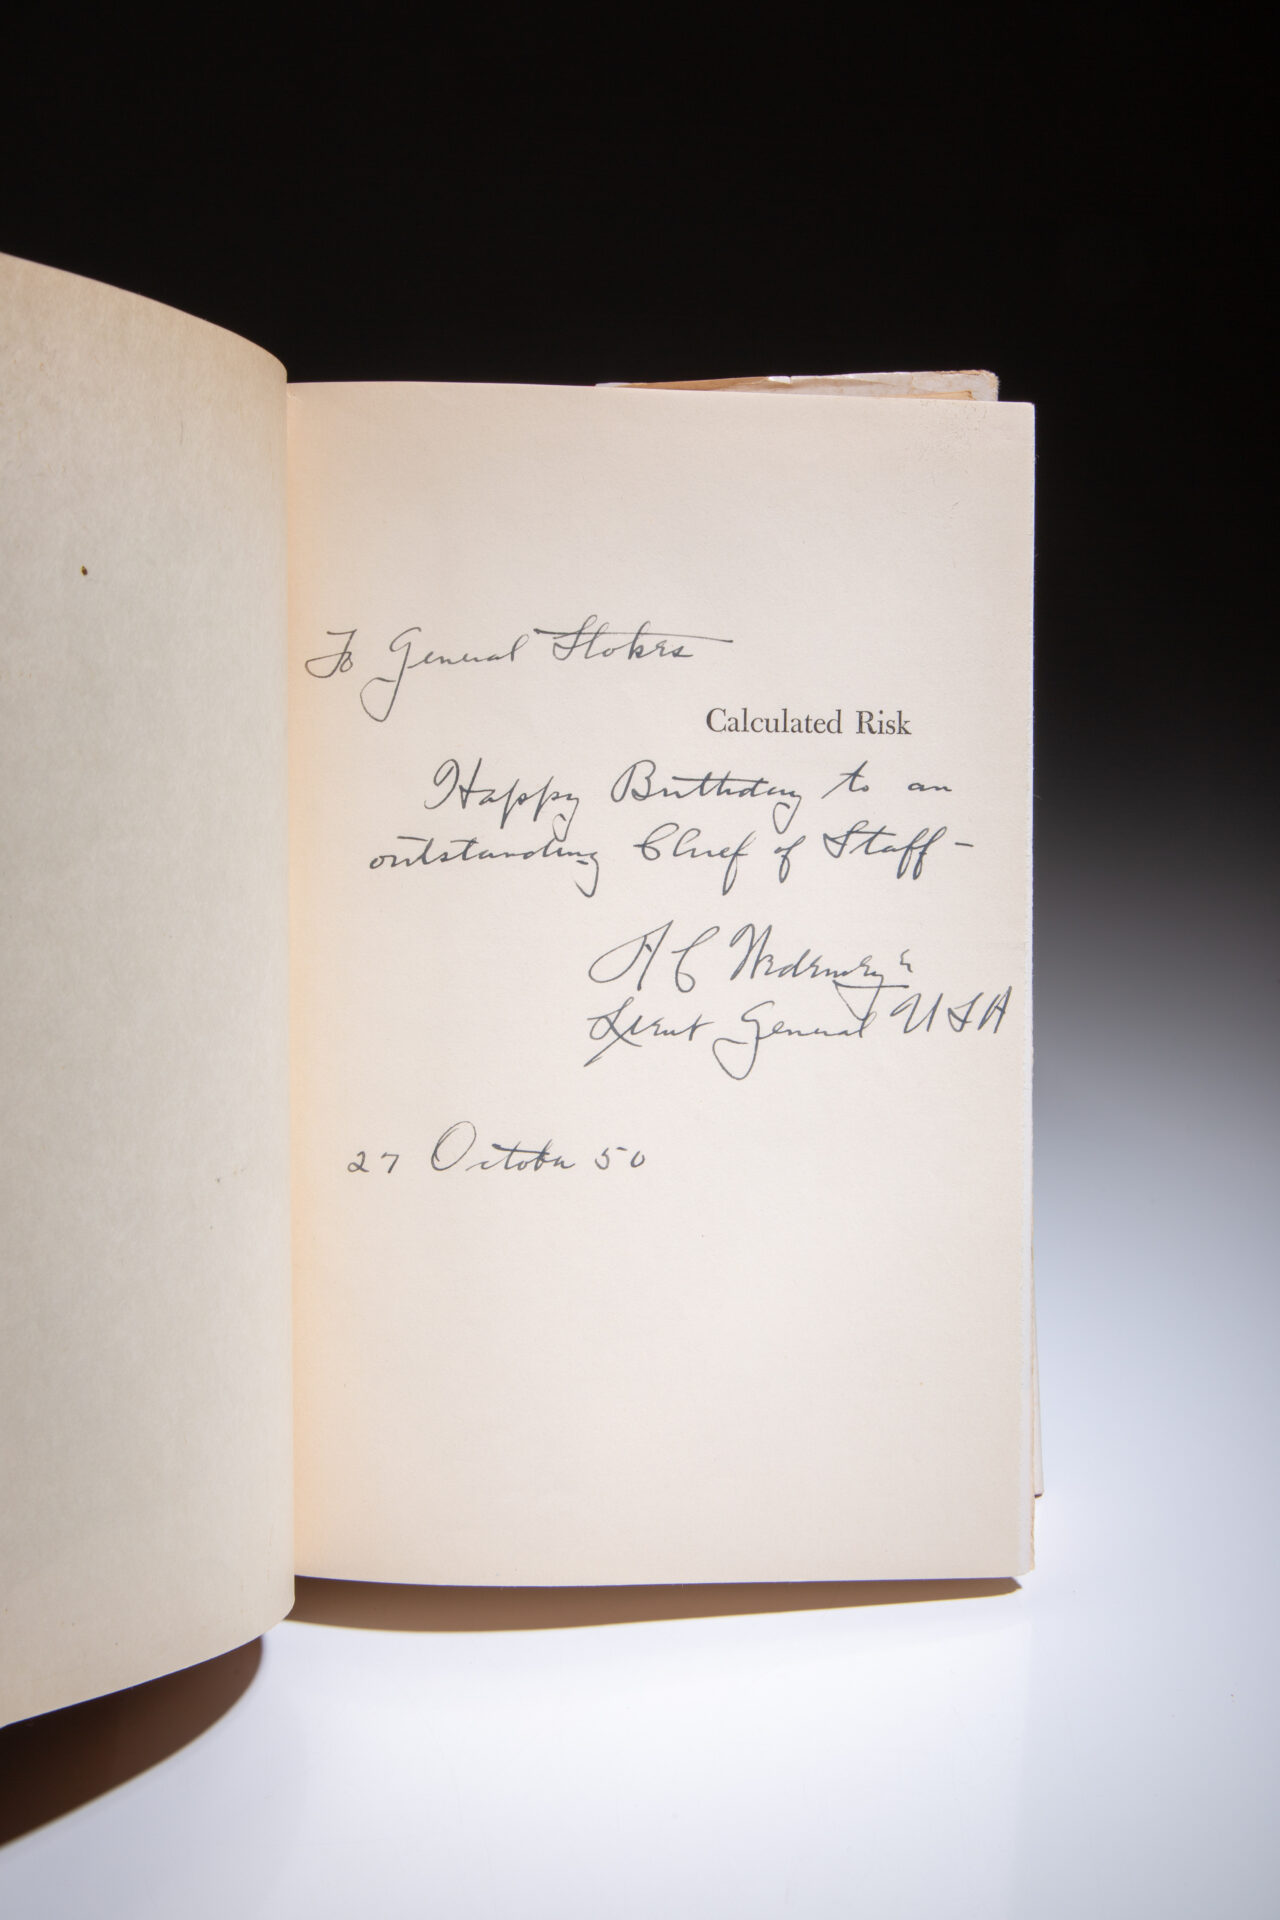 To General Stokes
Calculated Risk
Happy Birthday to an
outstanding Chief of Staff -
A C Wedemeyer
Lieut General USA
27 October 50